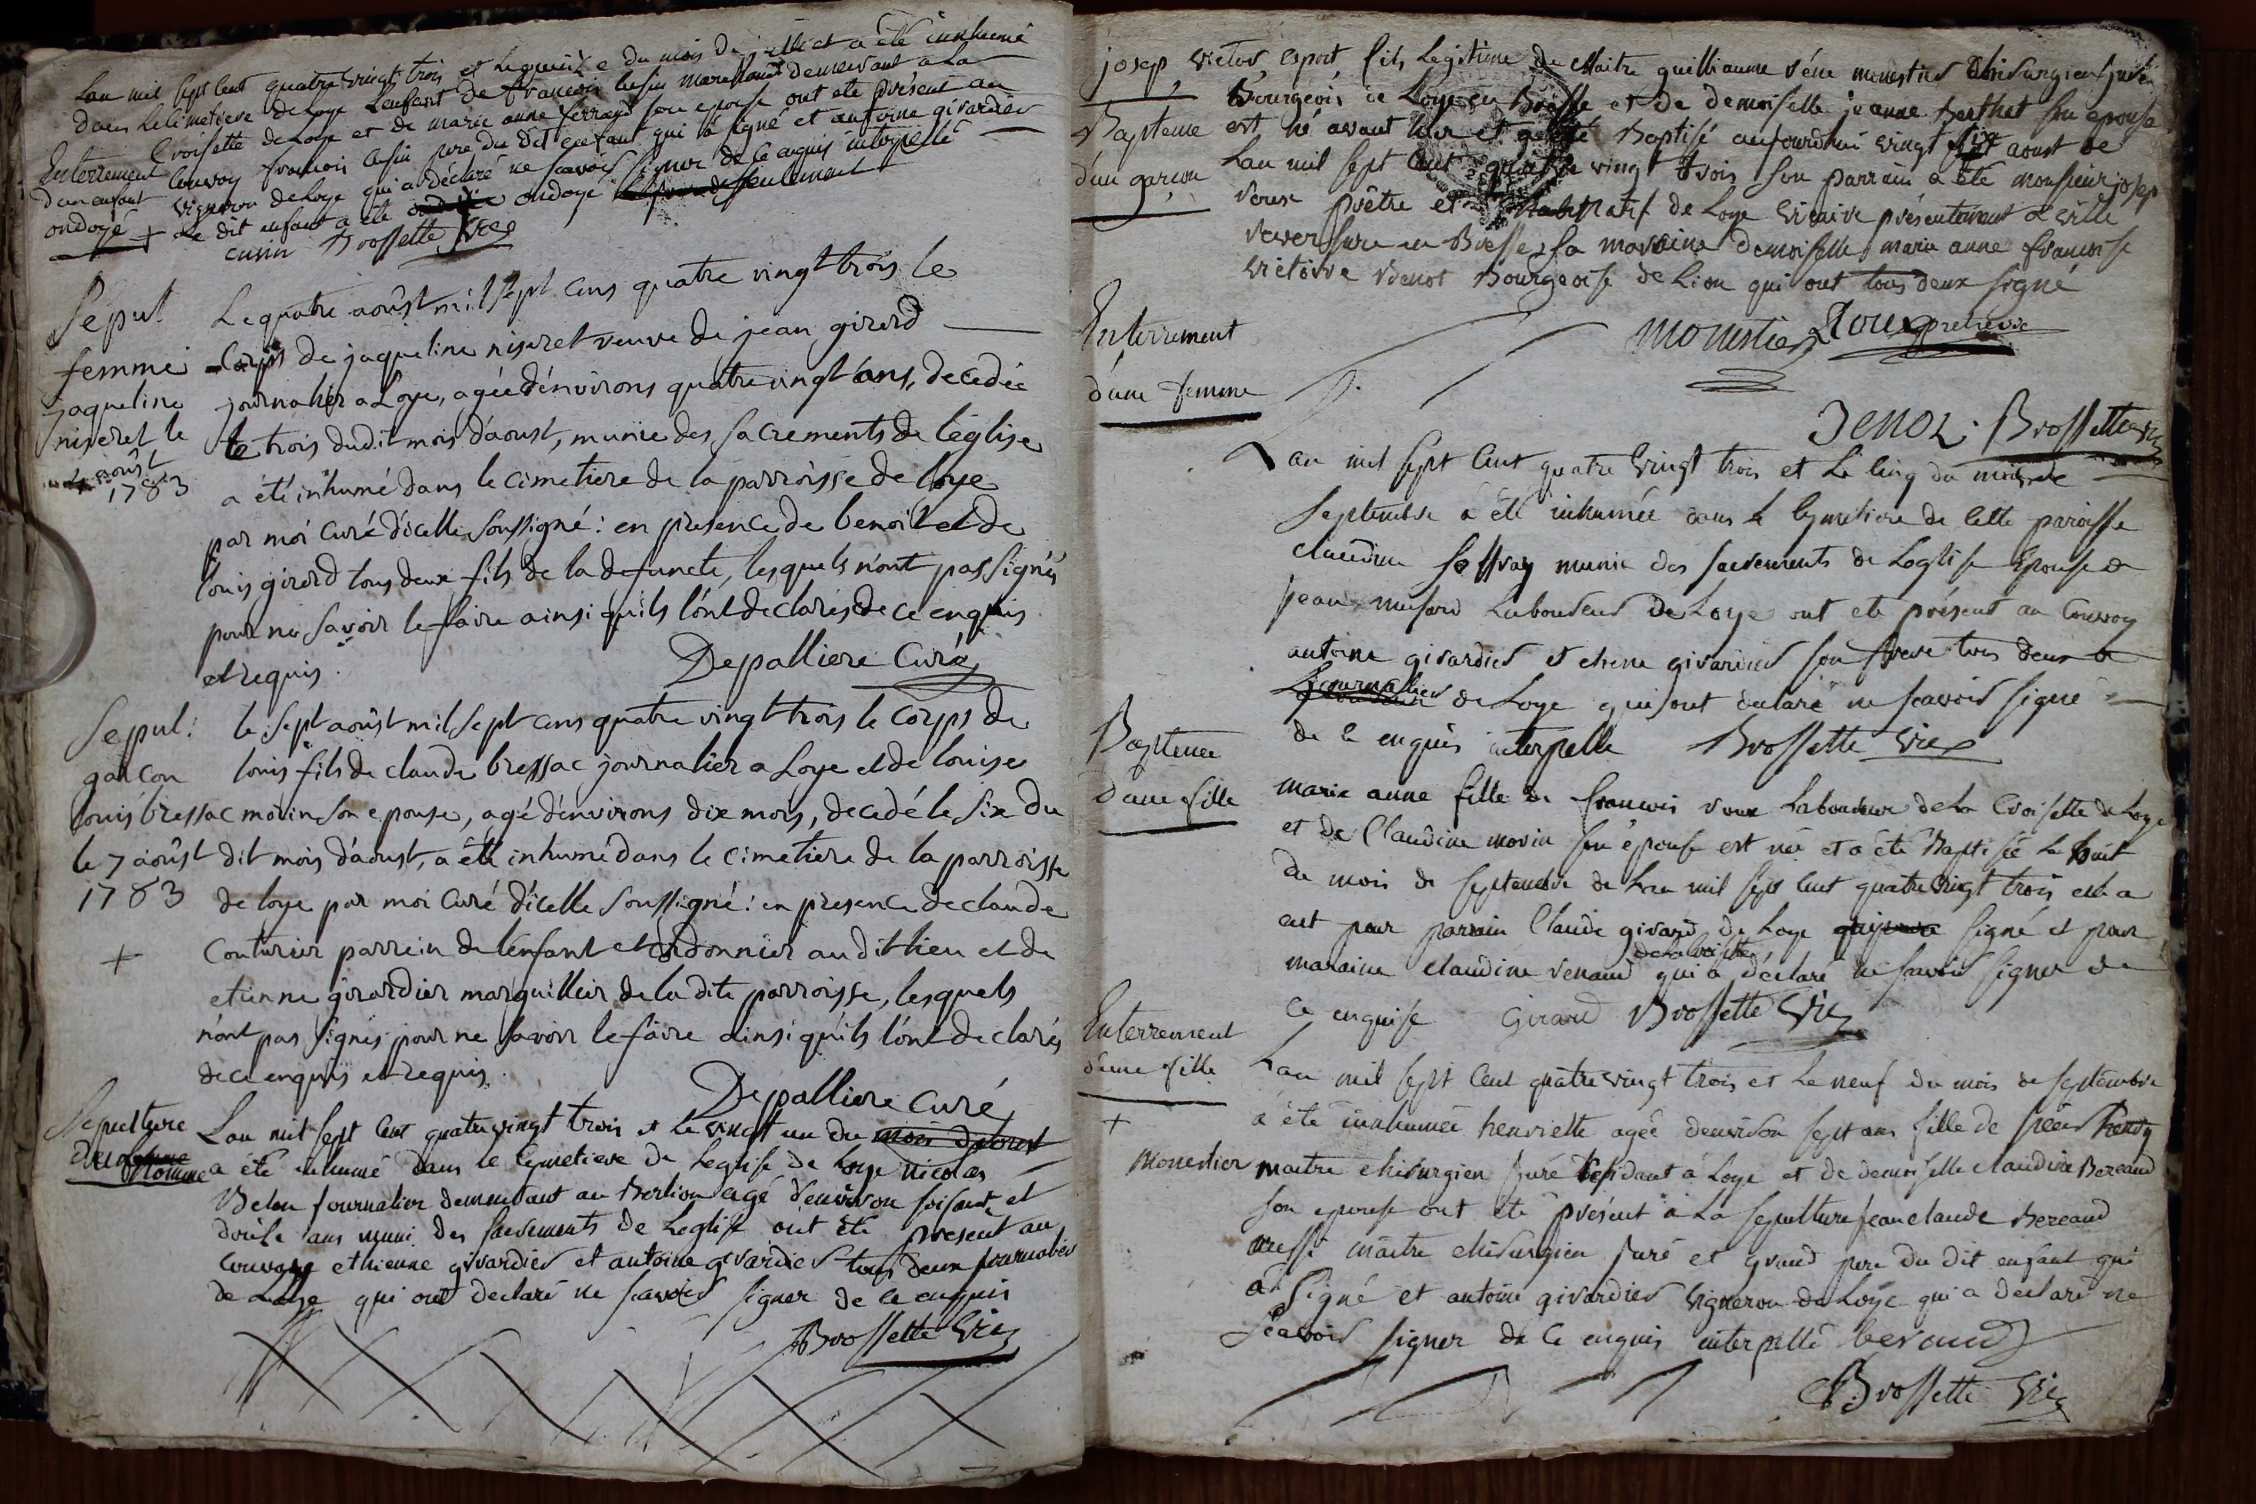 Lan mil sept cent quatre vingt trois et Le quinze du mois de juillet a été innhumé
dans Le cimetiere de Loye L'enfant de francois cusin marechand demeurant a La
Croisette de Loye et de marie anne ferrand son epouse ont eté présent au
Enterrement
d'un enfant
ondoyé
Convoy francois cusin pere du dit enfant qui a signé et antoine girardier
vigneron de Loye qui a déclaré ne scavoir signer de ce enquis interpellé
+ Le dit enfant a eté ondoyé seulement
cusin Brossette vice
Sepul
femme
jaqueline
niseret le
4 août
1783
Le quatre août mil sept cens quatre vingt trois le
corps de jaqueline niseret veuve de jean girord
journalier a Loye, agée d'environs quatre vingt ans, decedée
le trois dudit mois d'aoust, munie des sacrements de l'église
a été inhumé dans le cimetiere de la parroisse de loye
par moi Curé d'icelle soussigné: en presence de benoit et de
louis girord tous deux fils de la defuncte, lesquels n'ont pas signés
pour ne savoir le faire ainsi qu'ils l'ont declarés de ce enquis
et requis.
Depalliere Curé
Sepul:
garcon
louis bressac
le 7 août
1783
+
le sept août mil sept cens quatre vingt trois le corps de
louis fils de claude bressac journalier a Loye et de louise
morin son epouse, agé d'environs dix mois, decedé le six du
dit mois d'aoust, a été inhumé dans le cimetiere de la parroisse
de loye par moi Curé d'icelle soussigné: en presence de claude
couturier parrein de l'enfant et cordonnier au dit lieu et de
etienne girardier marguillier de la dite parroisse, lesquels
n'ont pas signés pour ne savoir le faire ainsi qu'ils l'ont declarés
de ce enquis et requis.
Depalliere Curé
Sepulture
d'un homme
Lan mil sept cent quatre vingt trois et Le vingt un du mois d'aoust
a été inhumé dans le Cymetiere de Leglise de Loye nicolas
Belon journalier demeurant au Berlion agé d'environ soisante et
douse ans muni des sacrements de Leglise ont été present au
Convoy ethienne girardier et antoine girardier tous deux journalier
de Loye qui ont declaré ne scavoir signer de ce enquis
Brossette vice
josep victor esprit fils Legitime de Maitre guilliaume réne monestier Chirurgien juré
Bapteme
d'un garcon
Bourgeois de Loye en Bresse et de demoiselle jeanne Berthet son epouse
est né avant hier et a été Baptisé aujourdhui vingt six aoust de
Lan mil sept cent quatre vingt trois son parrain a été monsieur josep
roux prêtre et natif de Loye vicaire présentement a ville
reversure en Bresse, sa maraine demoiselle marie anne francoise
victoire venot Bourgeoise de Lion qui ont tous deux signé
monestier Roux pretre vic
venoz. Brossette vice
Enterrement
d'une femme
Lan mil sept cent quatre vingt trois et Le cinq du mois de
septembre a été inhumée dans le Cymetiere de cette paroisse
claudine soffray munie des sacrements de Leglise epouse de
jean musard Laboureur de Loye ont eté présent au Convoy
antoine girardier et etiene girardier son frere tous deux
journalier de Loye qui ont declaré ne scavoir signé
de ce enquis interpelle Brossette vice
Bapteme
d'une fille
marie anne fille de francois roux Laboureur de La Croisette de Loye
et de Claudine morin son épouse est née et a été Baptisée Le huit
du mois de septembre de Lan mil sept cent quatre vingt trois elle a
eut pour parrain Claude girard de Loye signé et pour
maraine claudine renaud qui a déclaré ne savoir signer de
ce enquise Girard Brossette vice
Enterrement
d'une fille
+
Monestier
Lan mil sept cent quatre vingt trois et Le neuf du mois de septembre
a été innhumée henriette agée denviron sept ans fille de sieur
maitre chirurgien juré residant a Loye et de demoiselle claudine Beraud
son epouse ont été présent a La sepulture jean claude Beraud
aussi maitre chirurgien juré et grand pere du dit enfant qui
a signé et antoine girardier vigneron de Loye qui a declaré ne
scavoir signer de ce enquis interpellé beraud
Brossette vice